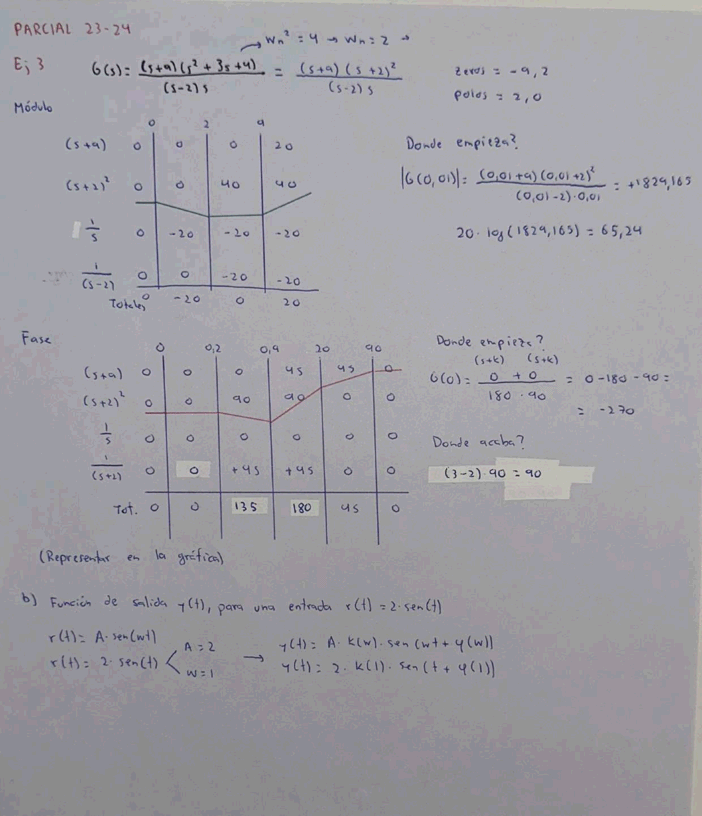 PARCIAL 23-24
→ Wn² = 4 → Wn = 2 →
Ej 3 G(s) = (s+9)(s² + 3s + 4) / (s-2)s = (s+9)(s+2)² / (s-2)s
zeros = -9, 2
polos = 2, 0
Módulo
0 2 9
(s+9) 0 0 0 20
(s+2)² 0 0 40 40
1/s 0 -20 -20 -20
1/(s-2) 0 0 -20 -20
Totales 0 -20 0 20
Donde empieza?
|G(0,01)| = (0,01+9)(0,01+2)² / (0,01-2)·0,01 = +1829,165
20 · log(1829,165) = 65,24
Fase
0 0,2 0,9 20 90
(s+9) 0 0 0 45 45 0
(s+2)² 0 0 90 90 0 0
1/s 0 0 0 0 0 0
1/(s+2) 0 0 +45 +45 0 0
Tot. 0 0 135 180 45 0
Donde empieza?
(s+k) (s+k)
G(0) = 0 + 0 / 180 · 90 = 0-180-90 =
= -270
Donde acaba?
(3-2)·90 = 90
(Representar en la gráfica)
b) Función de salida y(t), para una entrada r(t) = 2·sen(t)
r(t) = A·sen(wt)
r(t) = 2·sen(t) < A = 2 W = 1
→ y(t) = A·k(w)·sen(wt + φ(w))
y(t) = 2·k(1)·sen(t + φ(1))